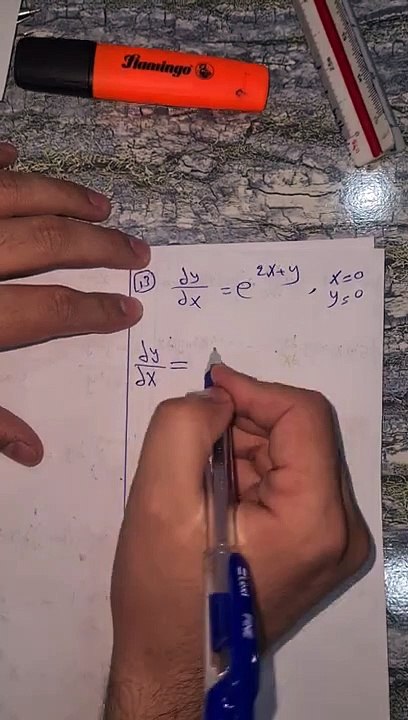 Flamingo
13 dy/dx = e^{2x+y} , x=0
y=0
dy/dx =